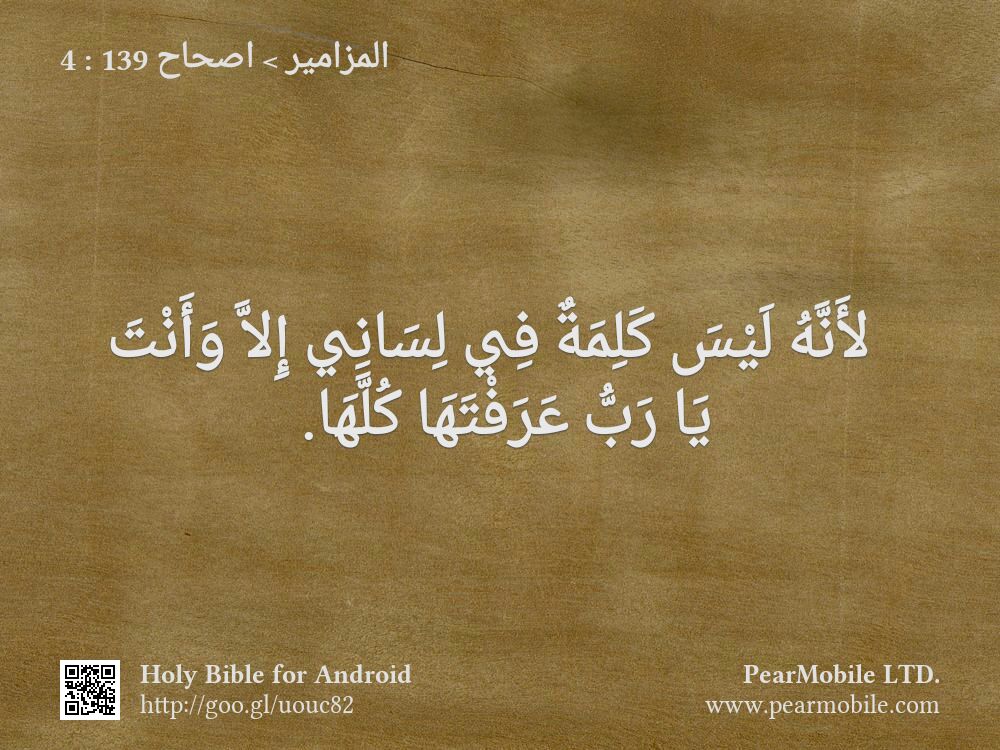 المزامير > اصحاح 139 : 4
لأَنَّهُ لَيْسَ كَلِمَةٌ فِي لِسَانِي إِلاَّ وَأَنْتَ
يَا رَبُّ عَرَفْتَهَا كُلَّهَا.
Holy Bible for Android
http://goo.gl/uouc82
PearMobile LTD.
www.pearmobile.com